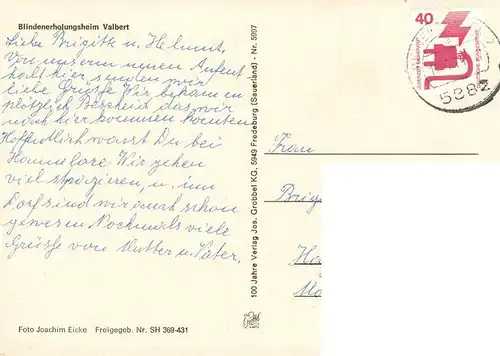 Blindenerholungsheim Valbert
Liebe Brigitte u. Helmut,
Von unserm neuen Aufent
halt hier senden wir
liebe Grüße Wir bekamen
plötzlich Bescheid das wir
noch hier kommen konnten
Hoffentlich warst Du bei
Hannelore. Wir gehen
viel spazieren, u. im
Dorf sind wir auch schon
gewesen Nochmals viele
Grüsse von Mutter u. Vater.
Foto Joachim Eicke Freigegeb. Nr. SH 369-431
100 Jahre Verlag Jos. Grobbel KG, 5949 Fredeburg (Sauerland) - Nr. 5997
40
5882
Frau
Brig